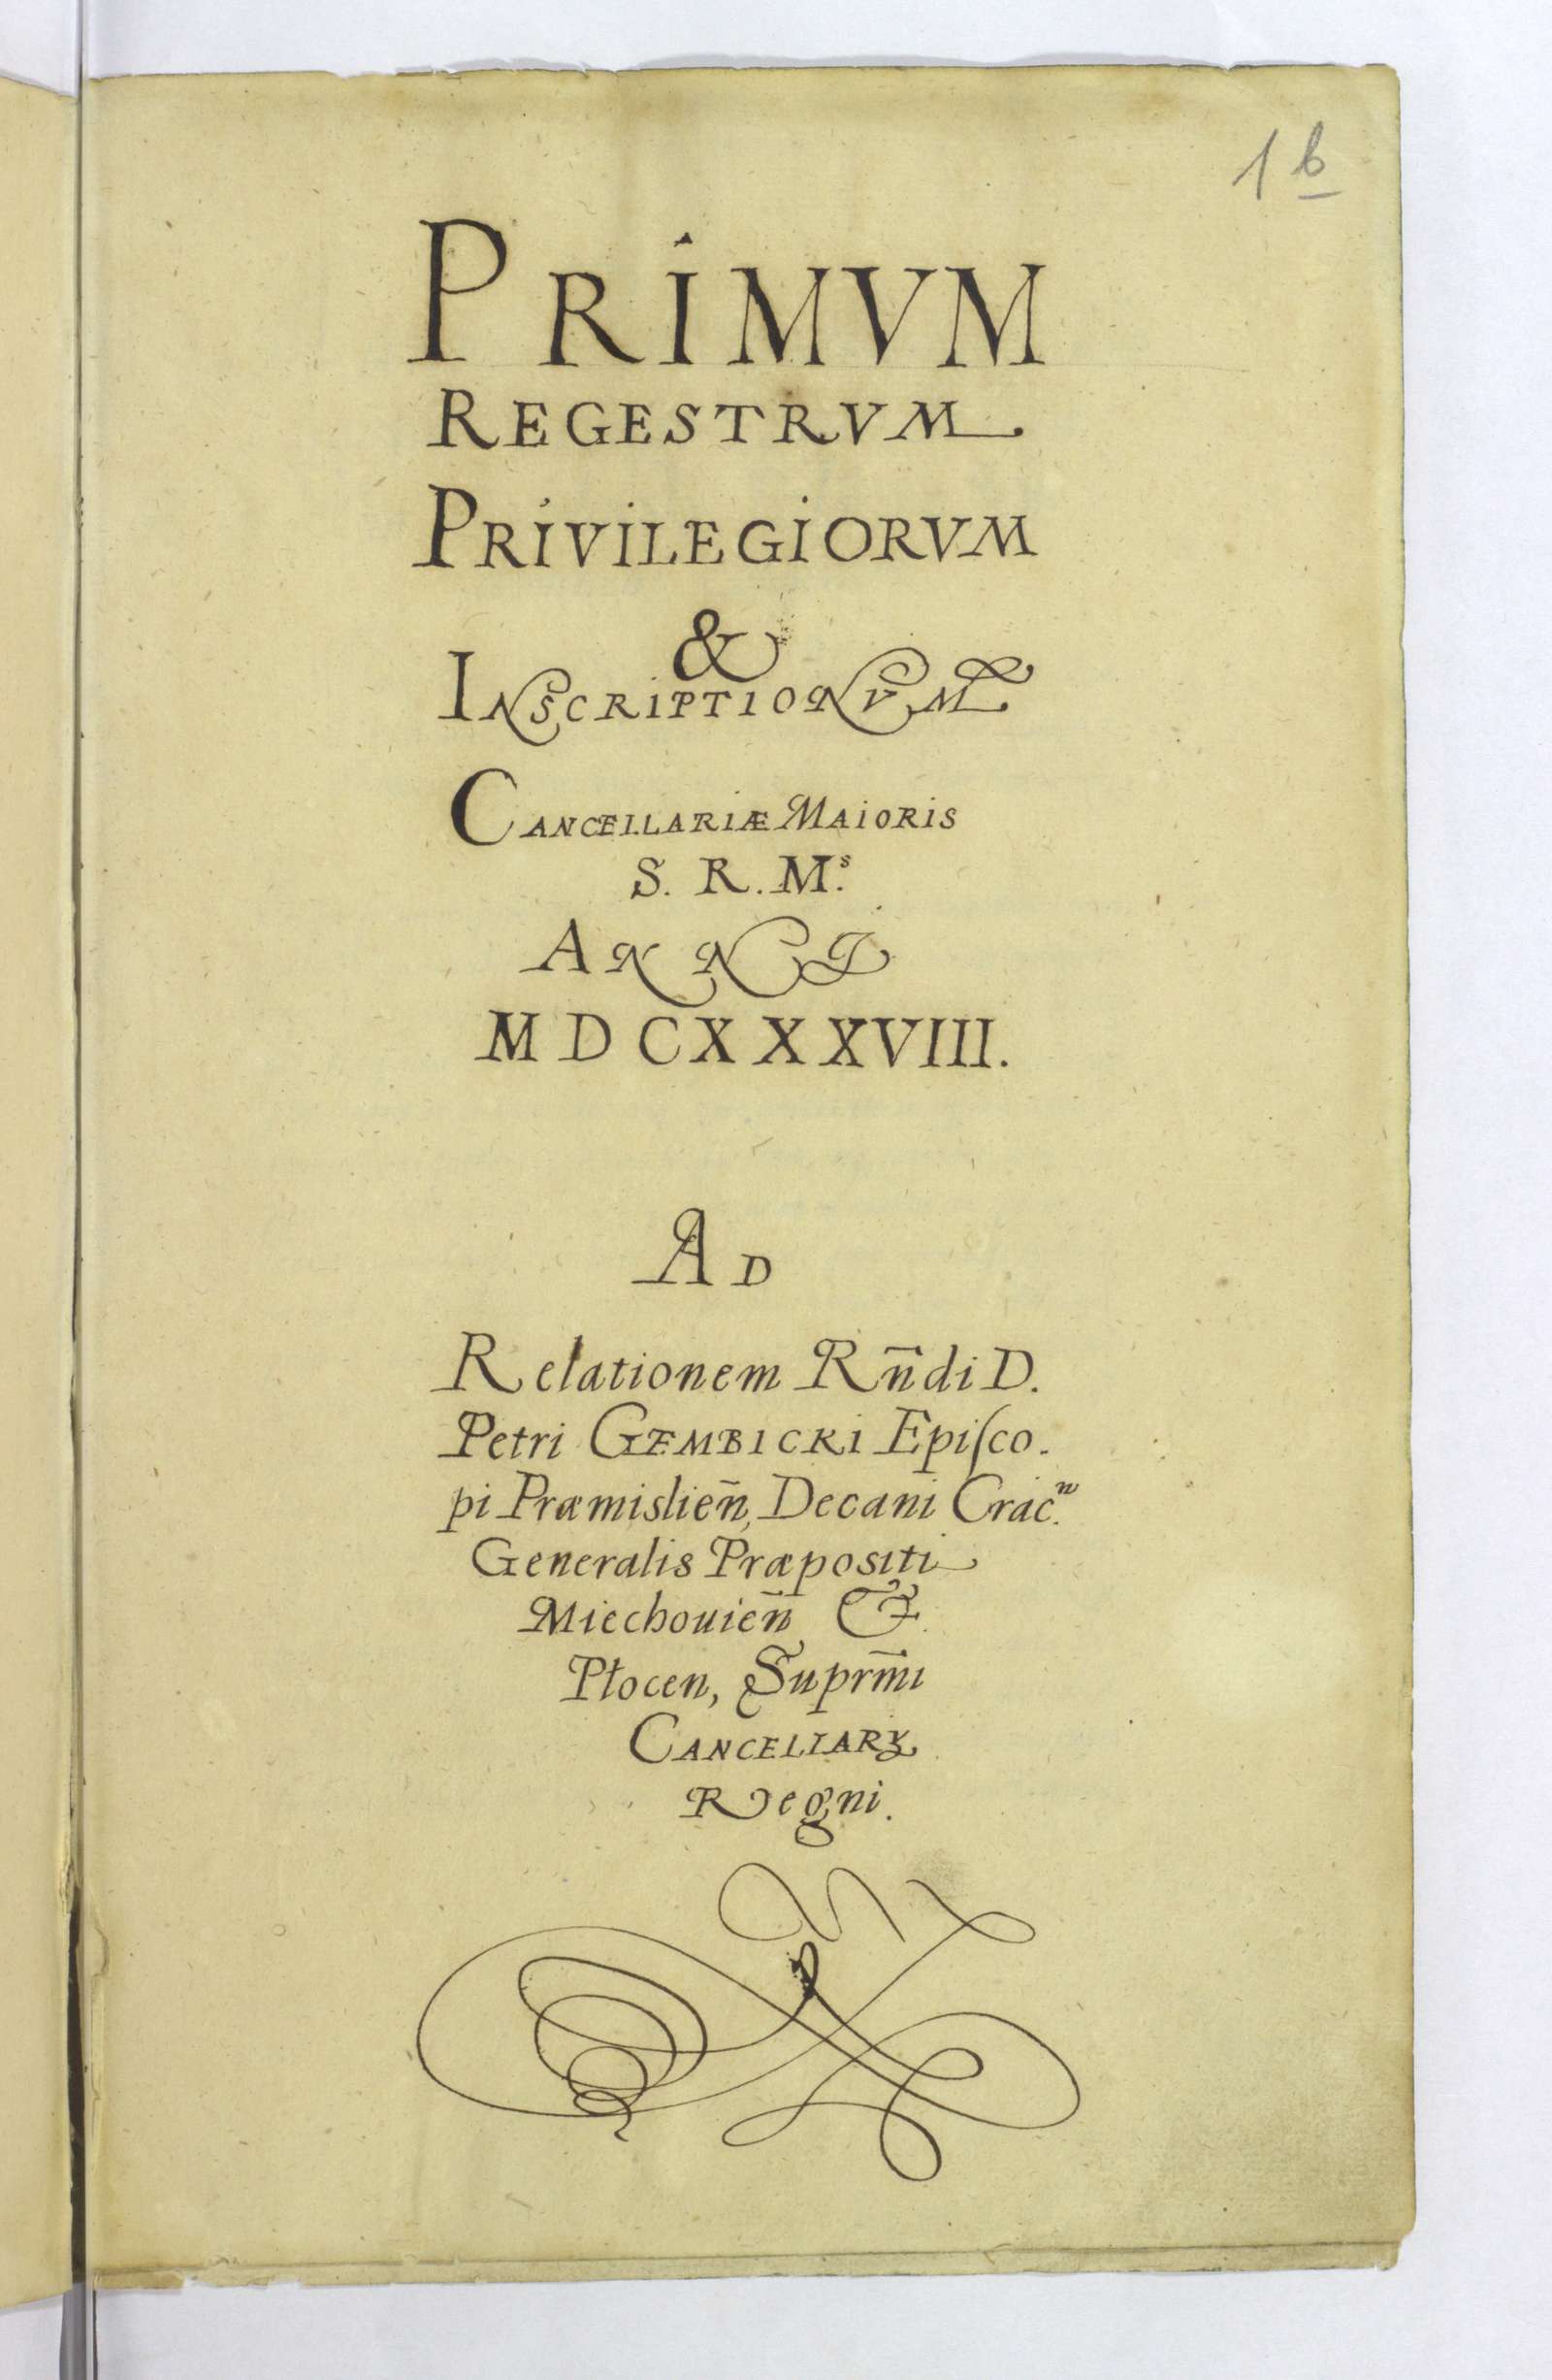 1 b
PRIMVM
REGESTRVM
PRIVILEGIORVM
&
INSCRIPTIONVM
CANCELLARIÆ MAIORIS
S. R. M.s
ANNO
MDCXXXVIII.
AD
Relationem Rn̄di D.
Petri GEMBICKI Epiſco.
pi Præmislien̄, Decani Crac.n
Generalis Præpositi
Miechouien̄ &
Płocen, Suprm̄i
CANCELLARY
Regni.